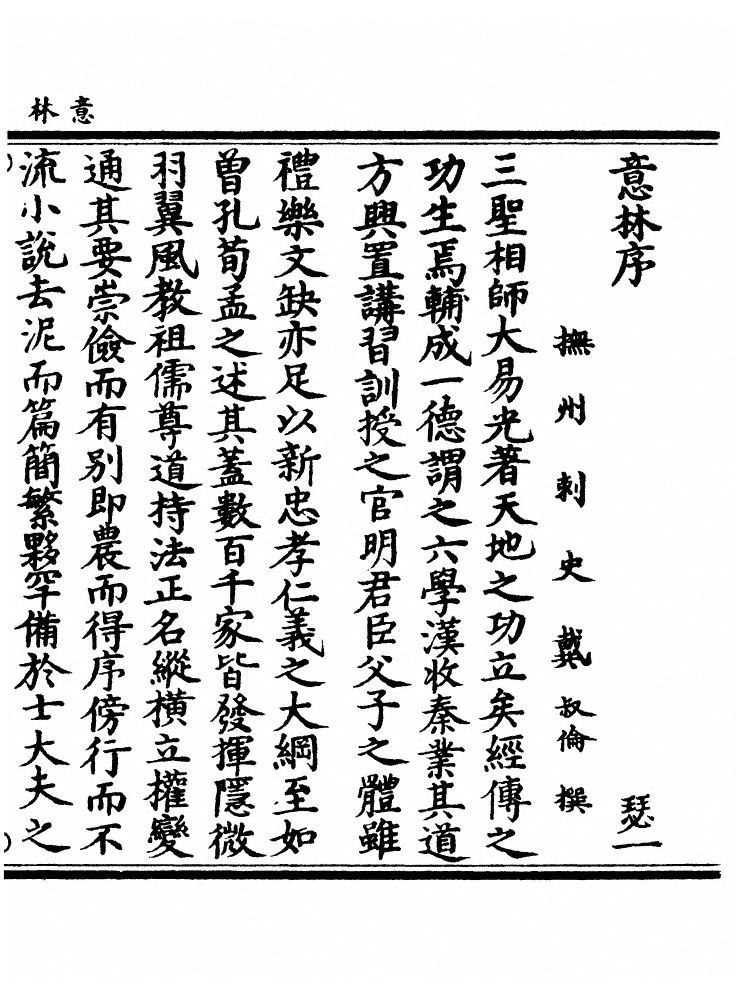 意林
意林序 瑟一
撫州刺史戴叔倫撰
三聖相師大易光著天地之功立矣經傳之
功生焉輔成一德謂之六學漢收秦業其道
方興置講習訓授之官明君臣父子之體雖
禮樂文缺亦足以新忠孝仁義之大綱至如
曾孔荀孟之述其蓋數百千家皆發揮隱微
羽翼風教祖儒尊道持法正名縱橫立權變
通其要崇儉而有別即農而得序傍行而不
流小說去泥而篇簡繁夥罕備於士大夫之